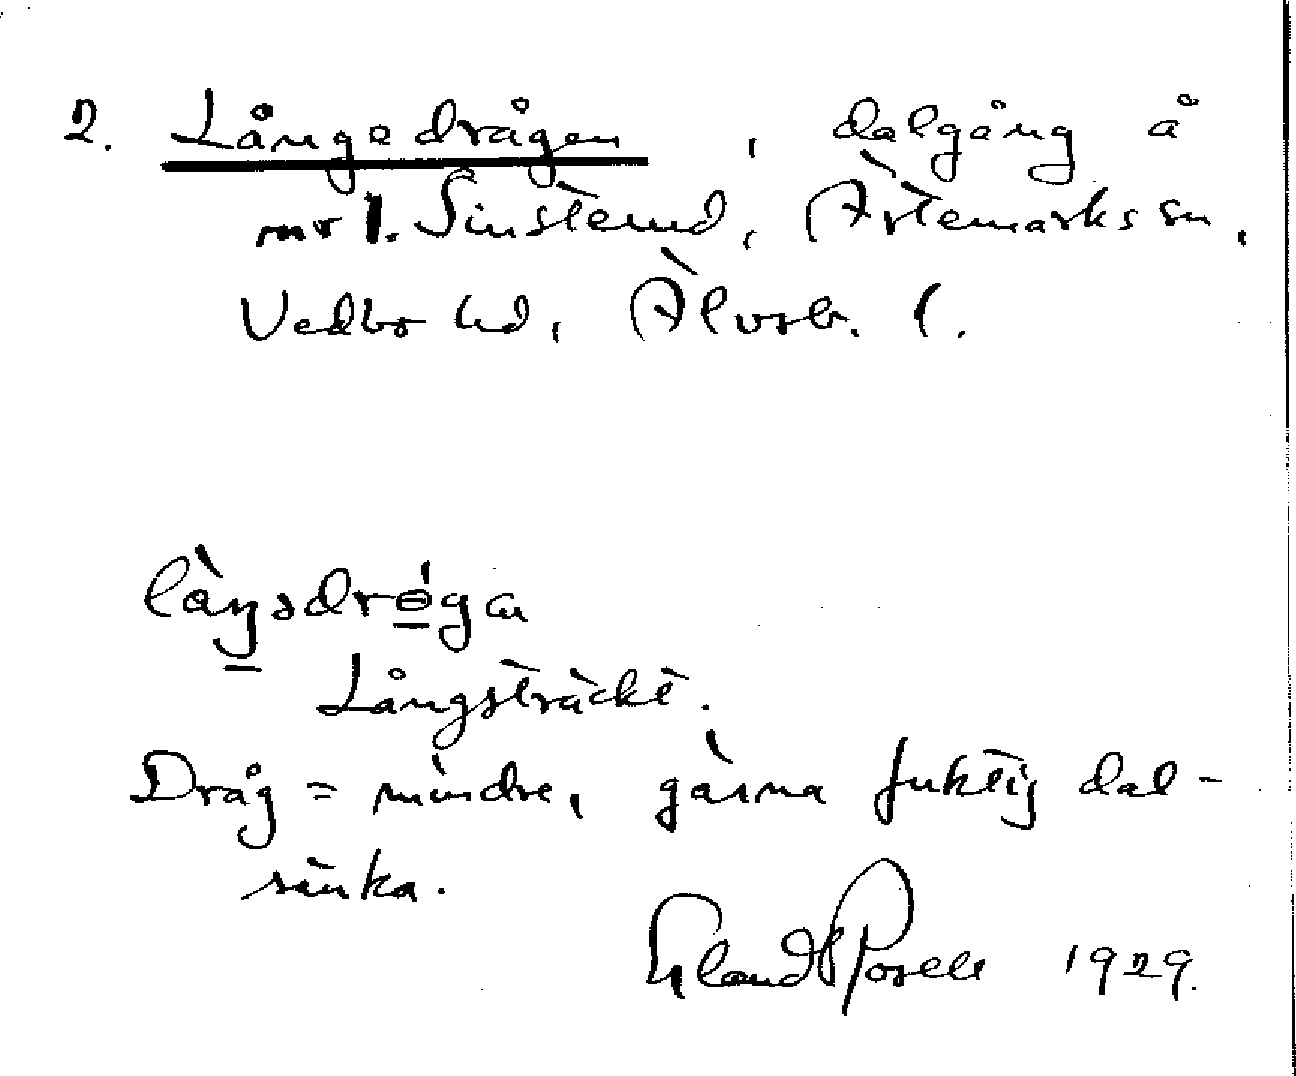 2. Långedrågen, dalgång å
nr 1. Sinsterud, Ärtemarks sn,
Vedbo hd, Älvsb. l.
Långsträckt.
Dråg = mindre, gärna fuktig dal-
sänka.
Erland Rosell 1929.